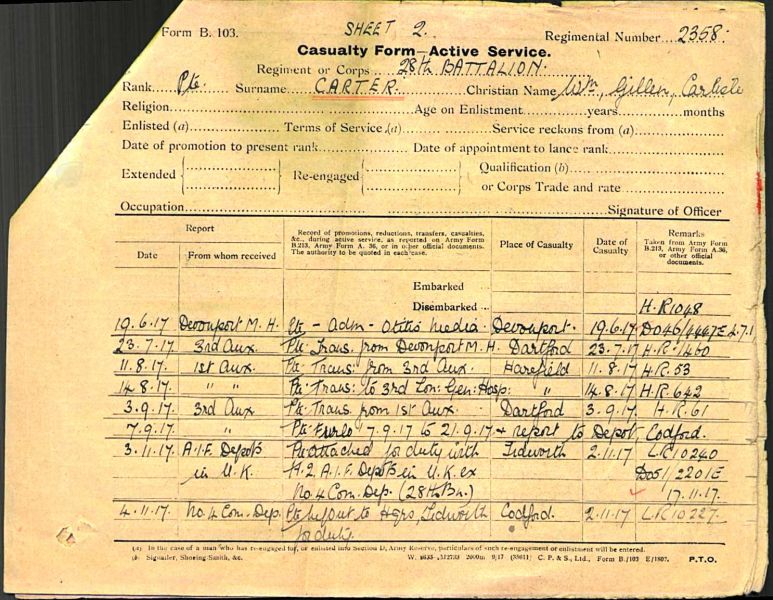 Form B. 103. SHEET 2. Regimental Number 2358.
Casualty Form—Active Service.
Regiment or Corps 28th BATTALION.
Rank Pte. Surname CARTER. Christian Name Wm, Gillen, Carlisle
Religion Age on Enlistment years months
Enlisted (a) Terms of Service (a) Service reckons from (a)
Date of promotion to present rank Date of appointment to lance rank
Extended Re-engaged Qualification (b)
or Corps Trade and rate
Occupation Signature of Officer
Report
Date From whom received
Record of promotions, reductions, transfers, casualties, &c., during active service, as reported on Army Form B.213, Army Form A. 36, or in other official documents. The authority to be quoted in each case.
Place of Casualty
Date of Casualty
Remarks
Taken from Army Form B.213, Army Form A.36, or other official documents.
Embarked
Disembarked H.R1048
19.6.17 Devonport M.H. Pte - Adm - Otitis Media. Devonport. 19.6.17 DO46/4447E 2.7.1
23.7.17 3rd Aux. Pte Trans. from Devonport M.H. Dartford 23.7.17 H.R. 1460
11.8.17 1st Aux. Pte Trans: from 3rd Aux. Harefield 11.8.17 H.R. 53
14.8.17 " " Pte Trans: to 3rd Lon: Gen: Hosp: " 14.8.17 H.R. 642
3.9.17 3rd Aux Pte Trans from 1st Aux. Dartford 3.9.17. H.R. 61
7.9.17. " Pte Furlo 7.9.17 to 21.9.17 & report to Depot, Codford.
3.11.17. A.I.F. Depots Pte attached for duty with Tidworth 2.11.17 L.R10240
in U.K. H.Q A.I.F. Depots in U.K. ex DO51/2201E
No.4 Com. Dep. (28th Bn.) 17.11.17.
4.11.17. No. 4 Com. Dep. Pte out to Hqrs, Tidworth Codford. 2.11.17 L.R10227.
for duty.
(a) In the case of a man who has re-engaged for, or enlisted into Section D, Army Reserve, particulars of such re-engagement or enlistment will be entered.
(b) Signaller, Shoeing-Smith, &c. 2000m 9/17 C. P. & S., Ltd., Form B./103 E/1807. P.T.O.